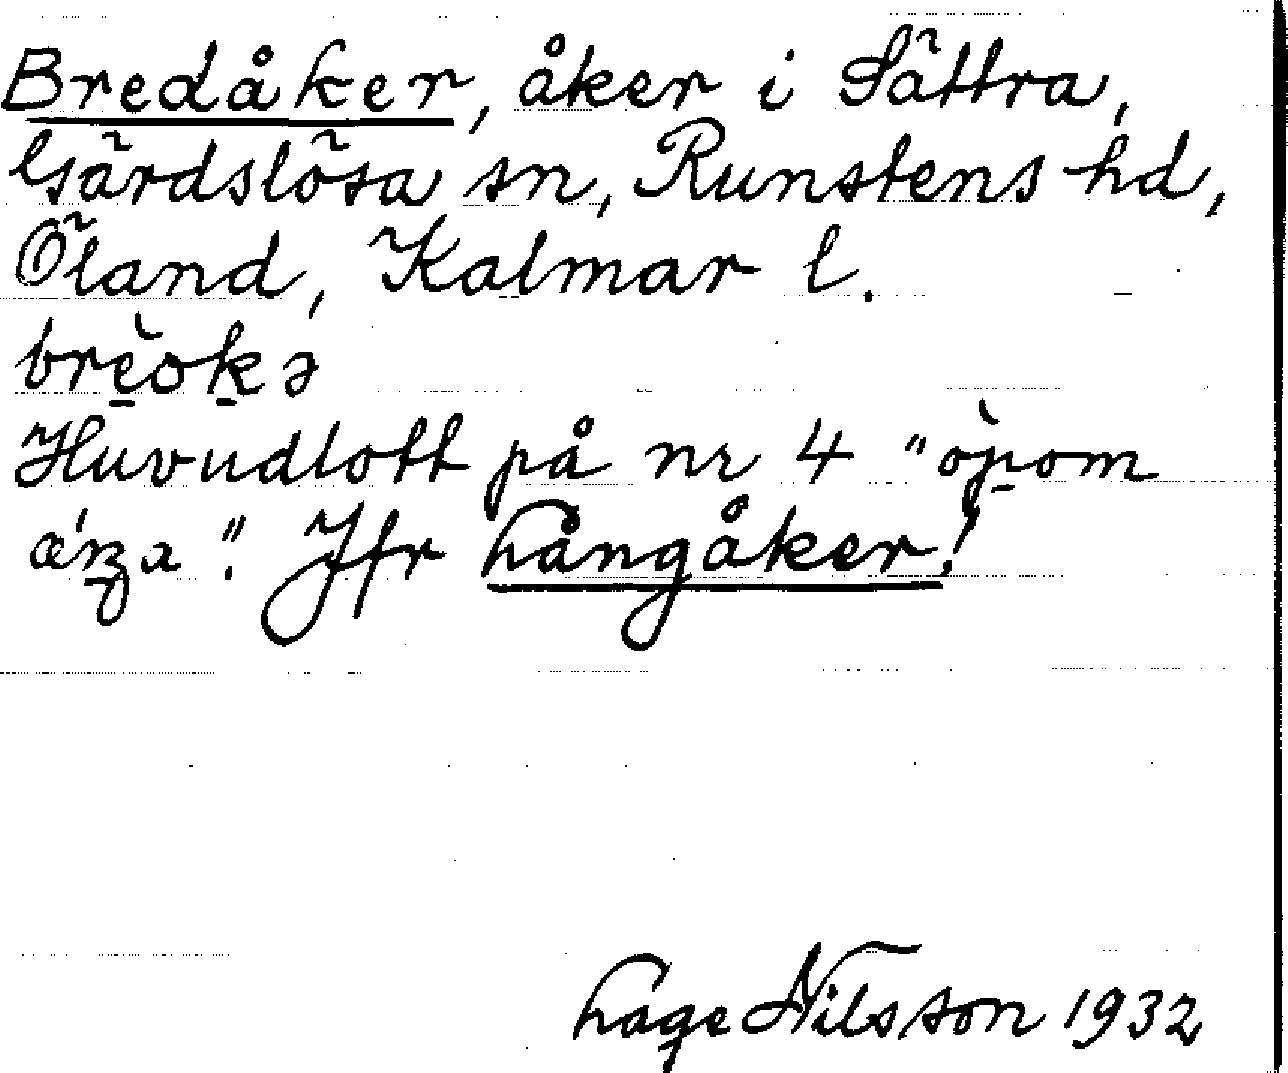 Bredåker, åker i Sättra,
Gärdslösa sn, Runstens hd,
Öland, Kalmar l.
Huvudlott på nr 4 "
". Jfr Långåker!
Lage Nilsson 1932